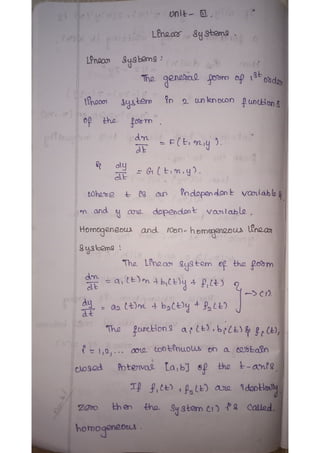 Unit - III.
Linear Systems.
Linear Systems :
The general form of 1st order
linear system in 2 unknown functions
of the form.
dx/dt = F(t, x, y).
& dy/dt = G(t, x, y).
where t is an independent variable &
x and y are dependent variable.
Homogeneous and Non-homogeneous linear
Systems :
The Linear System of the form
dx/dt = a₁(t)x + b₁(t)y + f₁(t) }
dy/dt = a₂(t)x + b₂(t)y + f₂(t) } → (1)
The functions aᵢ(t), bᵢ(t) & fᵢ(t),
i = 1,2,... are continuous on a certain
closed interval [a,b] of the t-axis
If f₁(t), f₂(t) are identically
zero then the system (1) is called.
homogeneous.